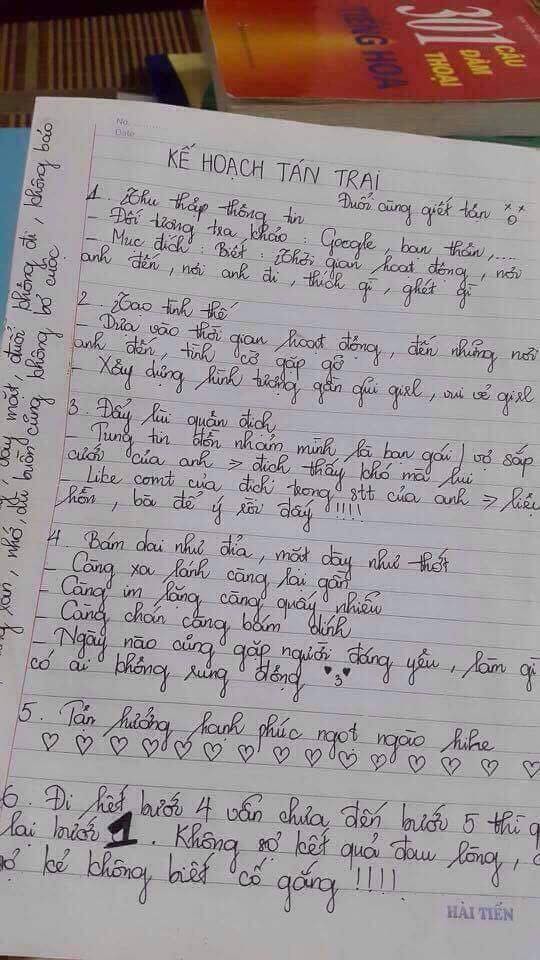 301
CÂU
ĐÀM
THOẠI
TIẾNG HOA
No.
Date
KẾ HOẠCH TÁN TRAI
1. Thu thập thông tin Đuổi cùng giết tận
- Đối tượng tra khảo: Google, bạn thân,....
- Mục đích: Biết: Thời gian hoạt động, nơi
anh đến, nơi anh đi, thích gì, ghét gì
2. Tạo tình thế
- Dựa vào thời gian hoạt động, đến những nơi
anh đến, tình cờ gặp gỡ
- Xây dựng hình tượng gần gũi girl, vui vẻ girl
3. Đẩy lùi quân địch
- Tung tin đồn nhảm mình là bạn gái / vợ sắp
cưới của anh => địch thấy khó mà lui
- Like comt của địch trong stt của anh => liệu
hồn, bà để ý rồi đấy !!!!
4. Bám dai như đỉa, mặt dày như thớt
- Càng xa lánh càng lại gần
- Càng im lặng càng quấy nhiễu
- Càng chán càng bám dính
- Ngày nào cũng gặp người đáng yêu, làm gì
có ai không rung động
5. Tận hưởng hạnh phúc ngọt ngào hihe
♡ ♡ ♡ ♡ ♡ ♡ ♡ ♡ ♡ ♡ ♡ ♡ ♡ ♡ ♡
6. Đi hết bước 4 vẫn chưa đến bước 5 thì
lại bước 1. Không sợ kết quả đau lòng,
sợ kẻ không biết cố gắng !!!!
HẢI TIẾN
mặt, đuổi không đi, không báo
xán, nhỏ, dù buồn cũng không bỏ cuộc